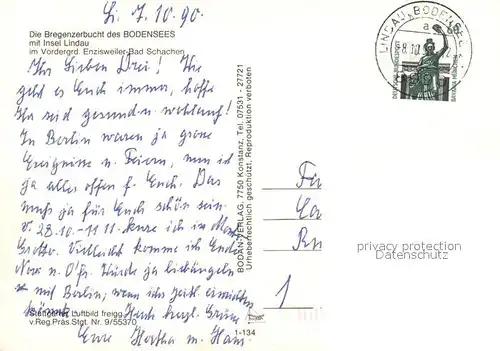 Li. 7.10.90.
Die Bregenzerbucht des BODENSEES
mit Insel Lindau
im Vordergrd. Enzisweiler-Bad Schachen
Ihr Lieben Drei! Wie
geht es Euch immer, hoffe
Ihr seid gesund u. wohlauf!
In Berlin waren ja grose
Ereignisse u. Feiern, nun ist
ja alles offen f. Euch. Das
muß ja für Euch schön sein.
v. 28.10. - 11.11. kure ich in
Grotto. Vielleicht komme ich Ende
Nov. n. Würde ja
mit Berlin, wenn ich zeitl. einrichten
könnte. Herzl. Grüße
Stuttgarter Luftbild freigg.
v. Reg. Präs. Stgt. Nr. 9/55370
Eure Hertha u. Hans
1-134
BODAN-VERLAG, 7750 Konstanz, Tel. 07531 - 27721
Urheberrechtlich geschützt, Reproduktion verboten
LINDAU, BODENSEE
a
8.10.
DEUTSCHE BUNDESPOST
60
BAVARIA MÜNCHEN
Fa
privacy protection
Datenschutz
1